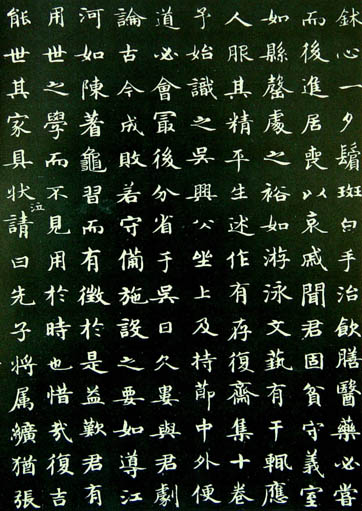 鉥心一夕鬢斑白手治飲膳醫藥必嘗
而後進居喪以哀戚聞君固貧守義室
如縣罄處之裕如游泳文藝有干輒應
人服其精平生述作有存復齋集十卷
予始識之吳興公坐上及持節中外便
道必會冣後分省于吳日久婁與君劇
論古今成敗若守備施設之要如導江
河如陳著龜習而有徵於是益歎君有
用世之學而不見用於時也惜哉復吉
能世其家具状泣請曰先子將属纊猶張